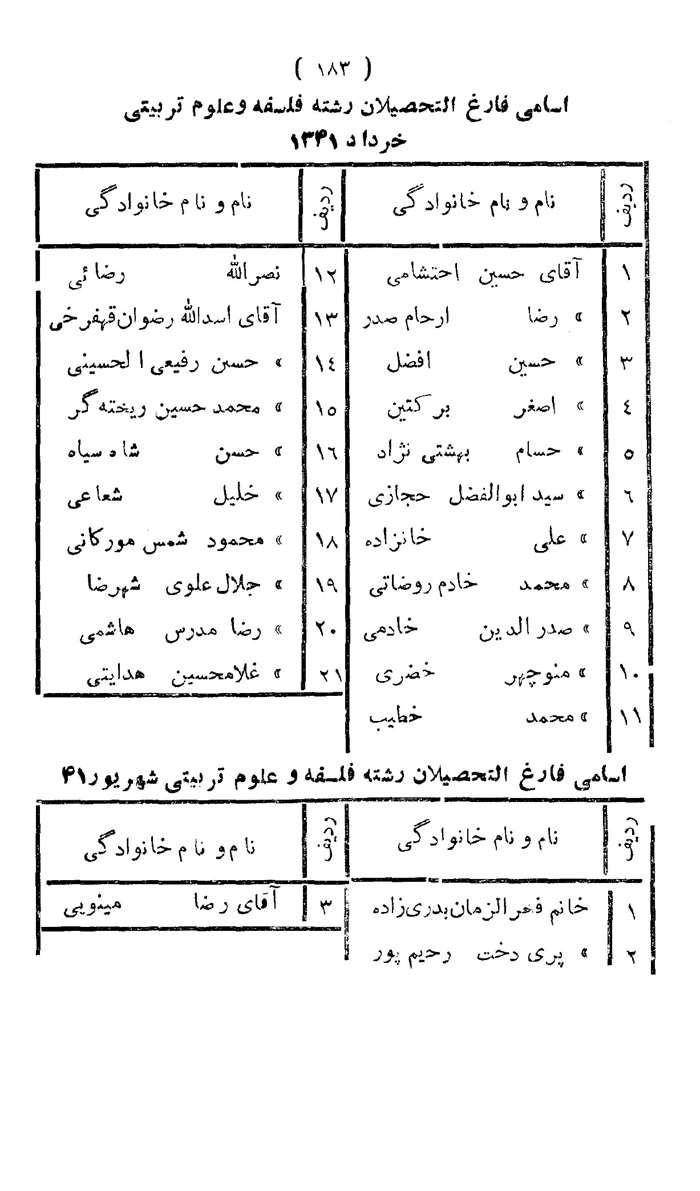 ( ۱۸۳ )
اسامی فارغ التحصیلان رشته فلسفه وعلوم تربیتی
خرداد ۱۳۴۱
ردیف نام و نام خانوادگی
۱ آقای حسین احتشامی
۲ » رضا ارحام صدر
۳ » حسین افضل
٤ » اصغر برکتین
۵ » حسام بهشتی نژاد
٦ » سید ابوالفضل حجازی
۷ » علی خانزاده
۸ » محمد خادم روضاتی
۹ » صدرالدین خادمی
۱۰ » منوچهر خضری
۱۱ » محمد خطیب
ردیف نام و نام خانوادگی
۱۲ نصرالله رضائی
۱۳ آقای اسدالله رضوان قهفرخی
۱٤ » حسن رفیعی الحسینی
۱۵ » محمد حسین ریخته گر
۱٦ » حسن شاه سیاه
۱۷ » خلیل شعاعی
۱۸ » محمود شمس مورکانی
۱۹ » جلال علوی شهرضا
۲۰ » رضا مدرس هاشمی
۲۱ » غلامحسین هدایتی
اسامی فارغ التحصیلان رشته فلسفه و علوم تربیتی شهریور ۴۱
ردیف نام و نام خانوادگی
۱ خانم فخرالزمان بدری زاده
۲ » پری دخت رحیم پور
ردیف نام و نام خانوادگی
۳ آقای رضا مینویی